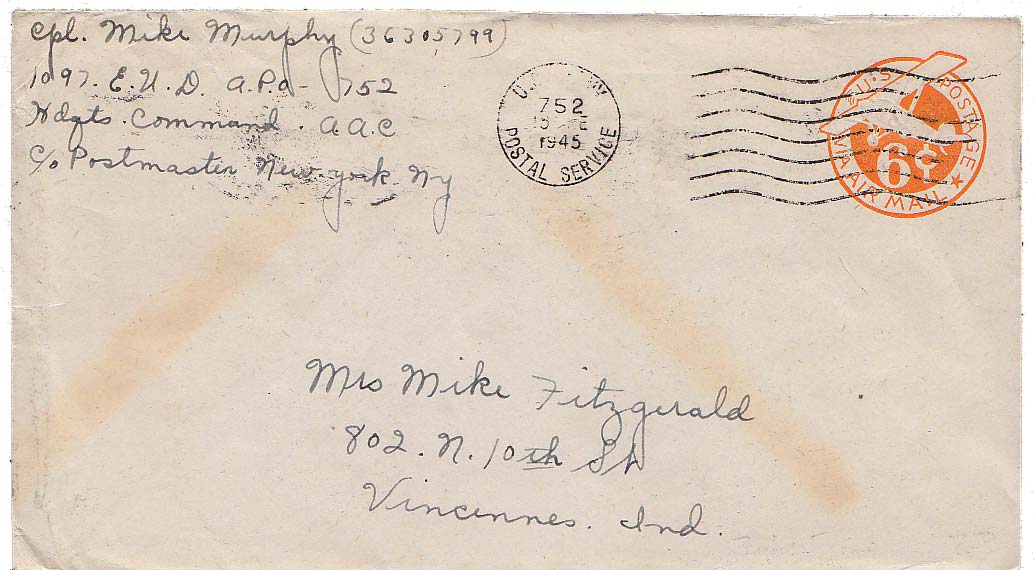 Cpl. Mike Murphy (36305799)
1097. E.U.D. A.P.O - 752
Hdqts. Command. A.A.C
C/o Postmaster New York NY
752
1945
POSTAL SERVICE
U.S. POSTAGE
6¢
VIA AIR MAIL
Mrs Mike Fitzgerald
802. N. 10th St
Vincennes. Ind.